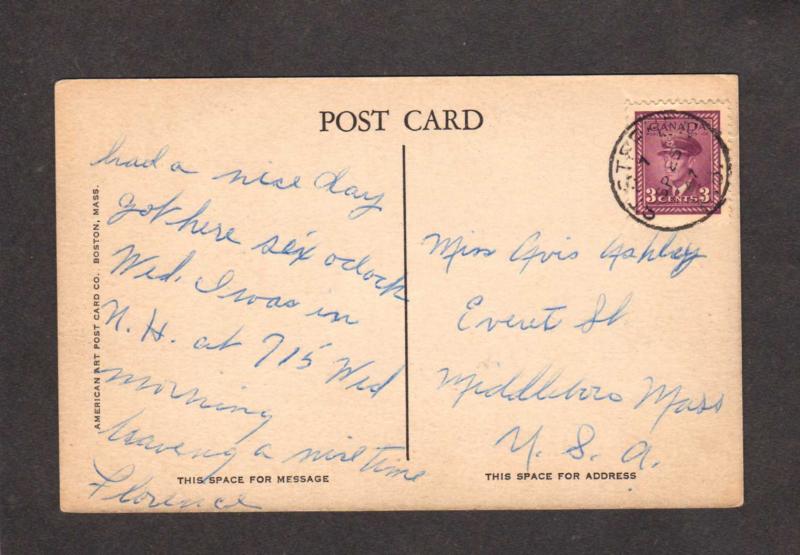 POST CARD
had a nice day
got here six oclock
Wed. I was in
N. H. at 715 Wed
morning
haveng a nise time
Florence
THIS SPACE FOR MESSAGE
AMERICAN ART POST CARD CO., BOSTON, MASS.
CANADA
3 CENTS 3
Miss Avis Ashley
Everet St
Middleboro Mass
U. S. A.
THIS SPACE FOR ADDRESS